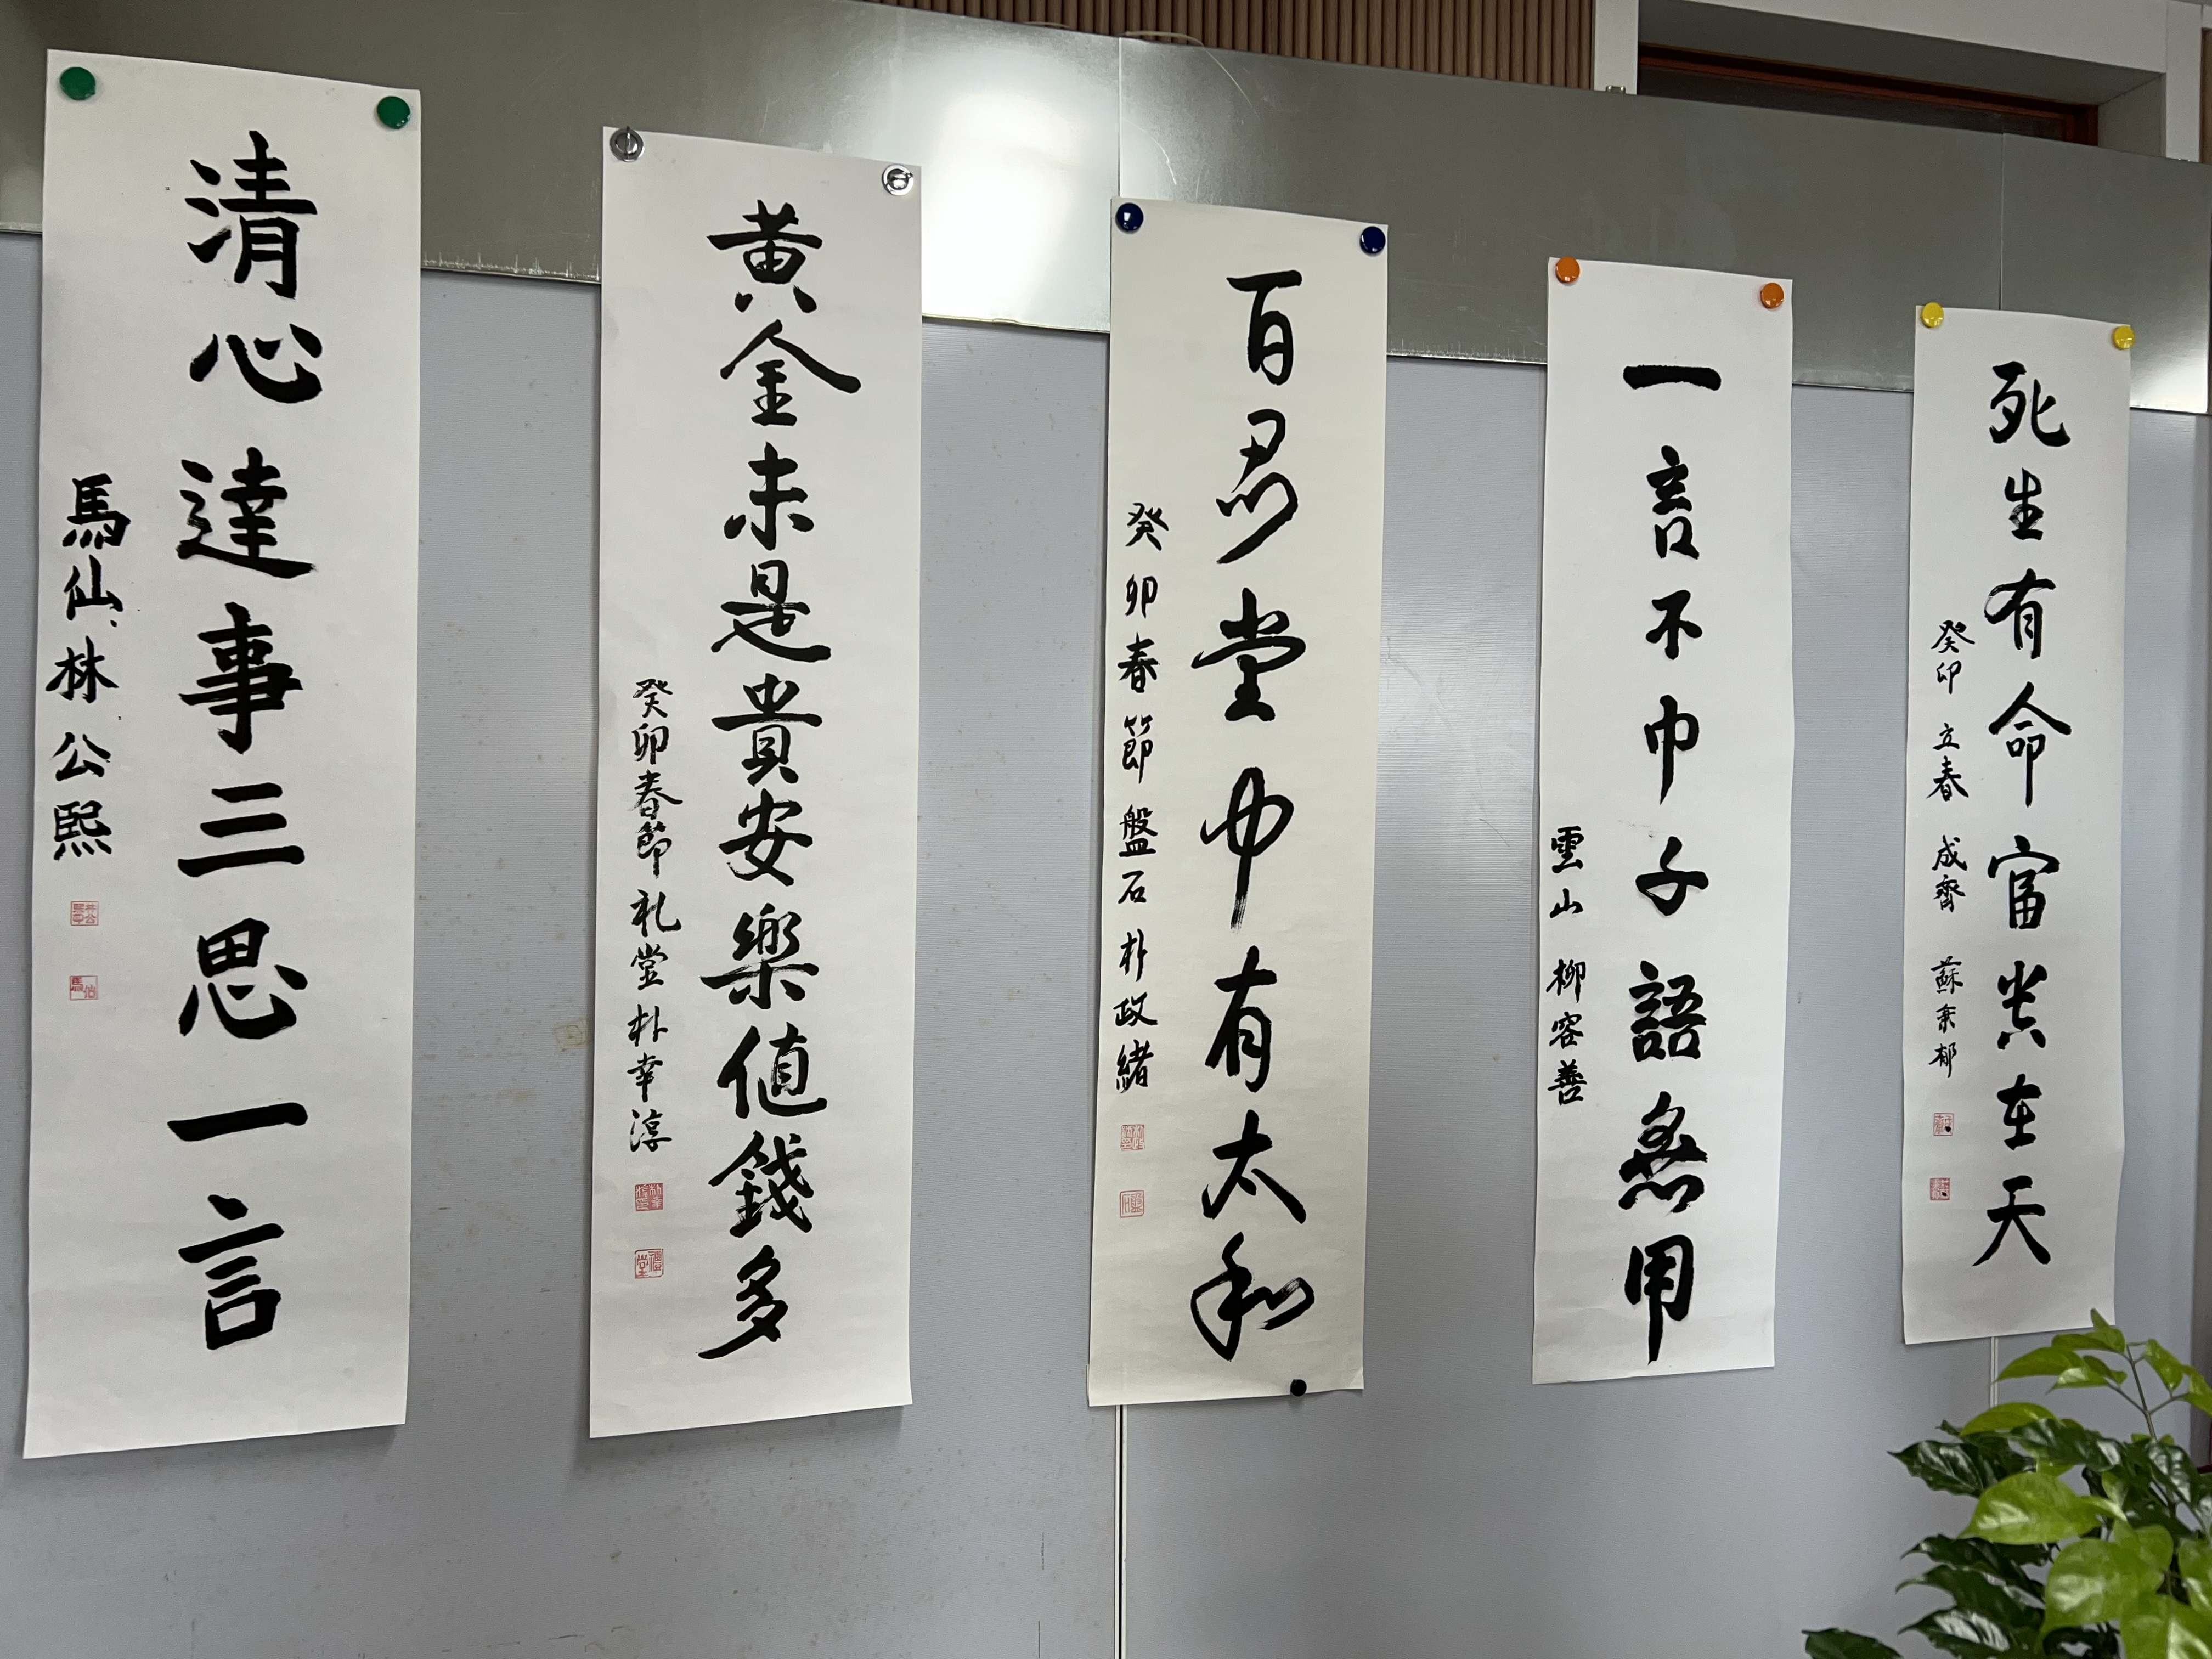 死生有命富貴在天
癸卯 立春 成齊 蘇秉郁
一言不中千語無用
雲山 柳容善
百忍堂中有太和
癸卯春節 盤石 朴政緒
黄金未是貴安樂値錢多
癸卯春節 礼堂 朴幸淳
清心達事三思一言
馬仙 林公熙